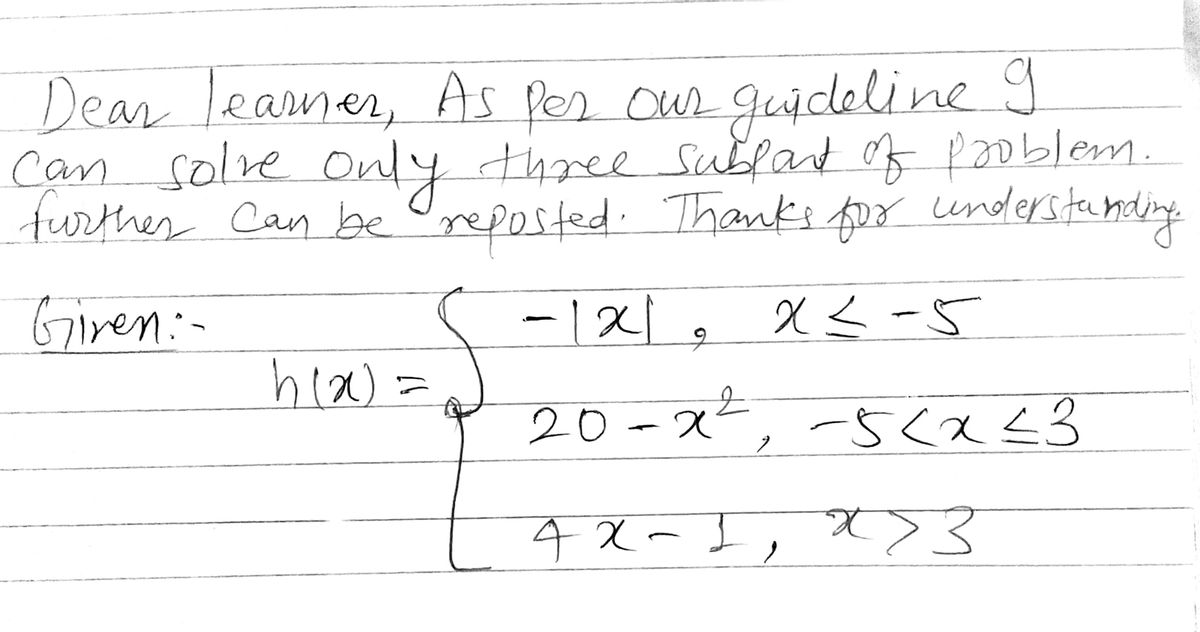 Dear learner, As per our guideline I
can solve only three subpart of problem.
further can be reposted. Thanks for understanding.
Given:-
-|x|, x ≤ -5
h(x) =
20 - x², -5 < x ≤ 3
4x - 1, x > 3